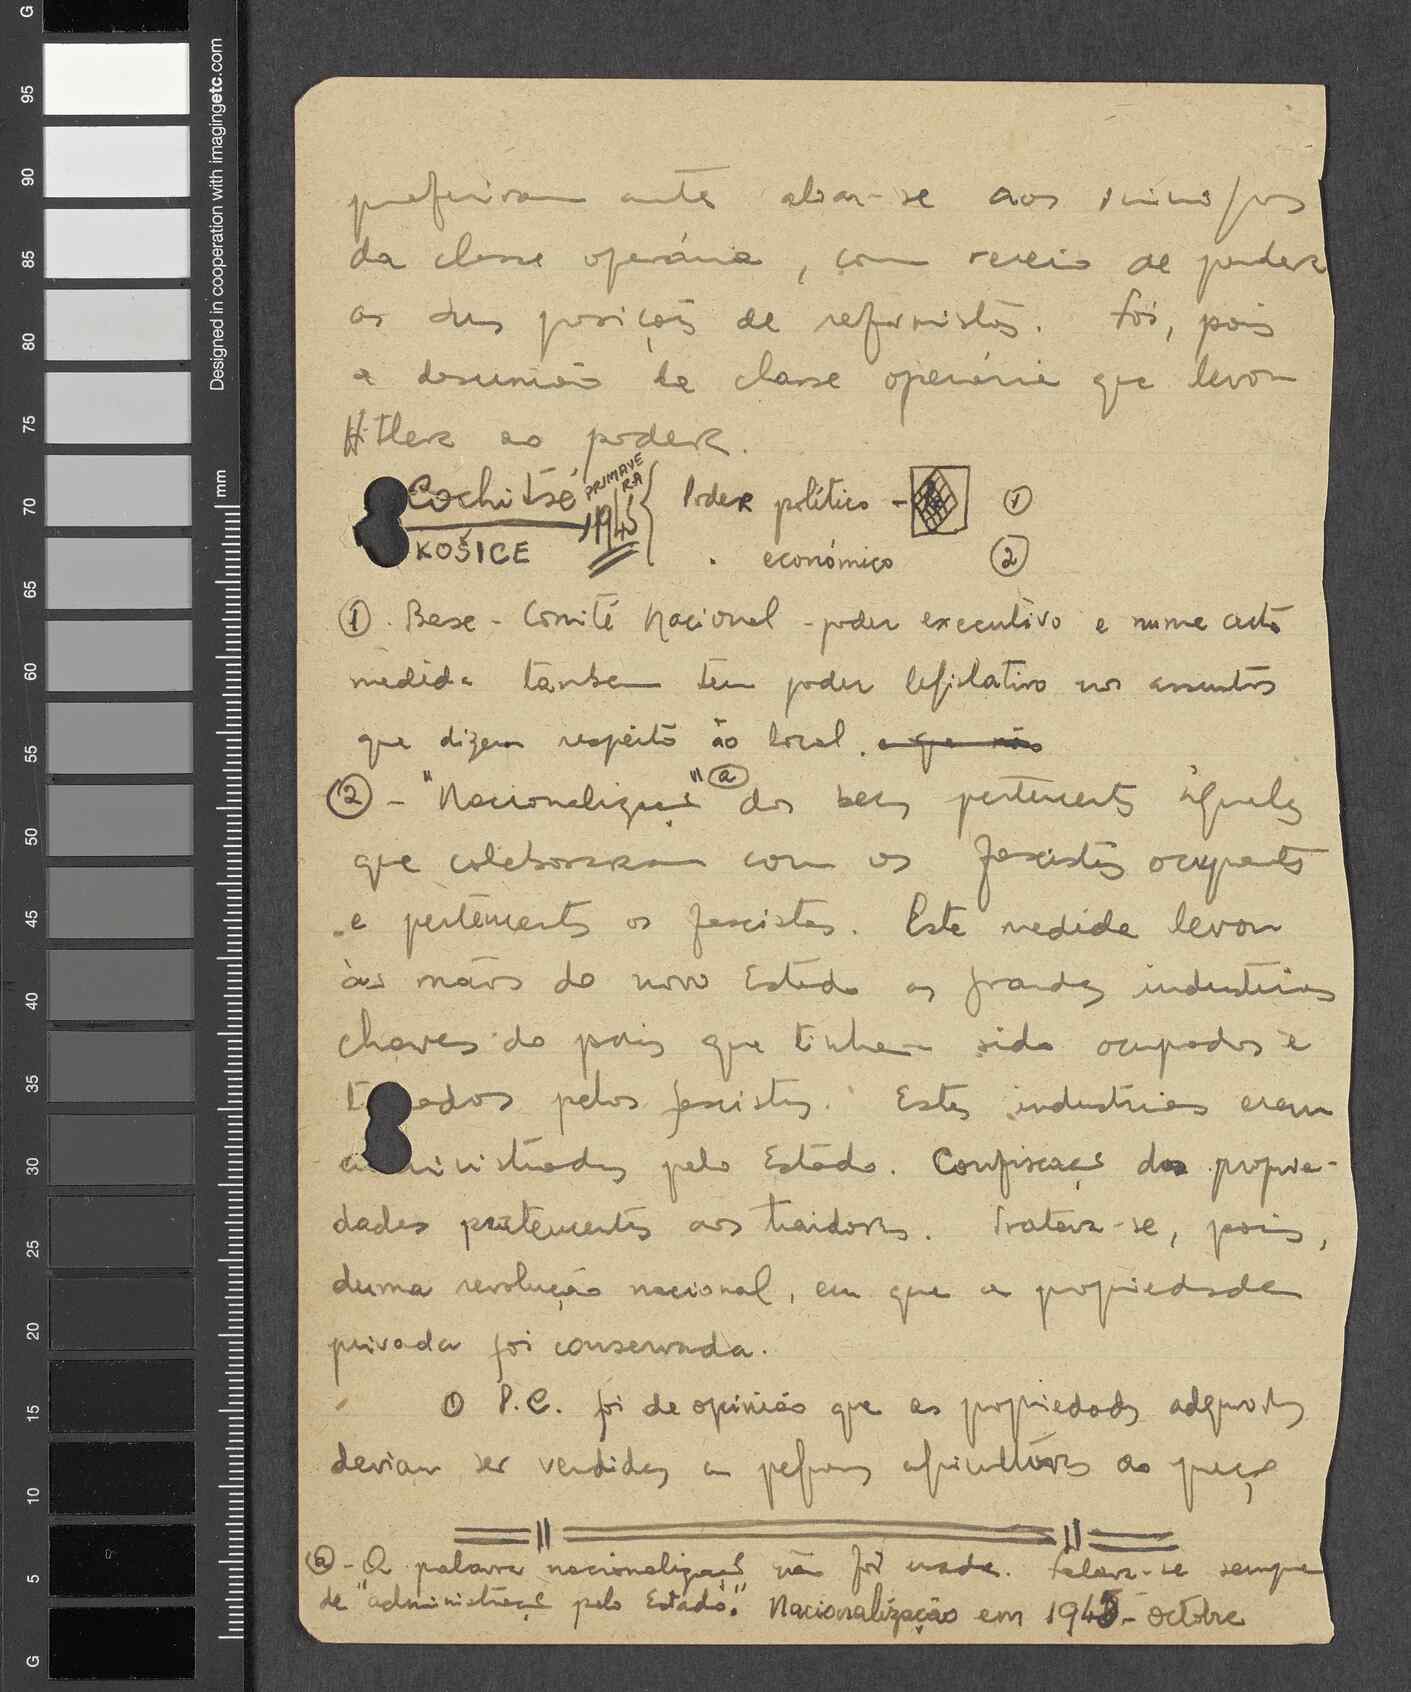 G
95
90
85
80
75
70
65
60
55
50
45
40
35
30
25
20
15
10
5
G
Designed in cooperation with imagingetc.com
mm
preferiram antes aliar-se aos inimigos
da classe operária, com receio de perder
as suas posições de reformistas. Foi, pois
a desunião da classe operária que levou
Hitler ao poder.
Cochitsé PRIMAVERA 1945 { Poder político - ①
KOŠICE " económico ②
① Base - Comité Nacional - poder executivo e numa certa
medida também tem poder legislativo nos assuntos
que dizem respeito ao local. e que não
② - "Nacionalização" ⓐ dos bens pertencentes àqueles
que colaboraram com os fascistas ocupantes
e pertencentes os fascistas. Esta medida levou
às mãos do novo Estado as grandes industrias
chaves do país que tinham sido ocupados e
t adas pelos fascistas. Estas industrias eram
administradas pelo Estado. Confiscação das proprie-
dades pertencentes aos traidores. Tratava-se, pois,
duma revolução nacional, em que a propriedade
privada foi conservada.
O P.C. foi de opinião que as propriedades
deviam ser vendidas a pequenos agricultores ao preço
ⓐ - A palavra nacionalização não foi usada. Falava-se sempre
de "administração pelo Estado." Nacionalização em 1945 - octobre